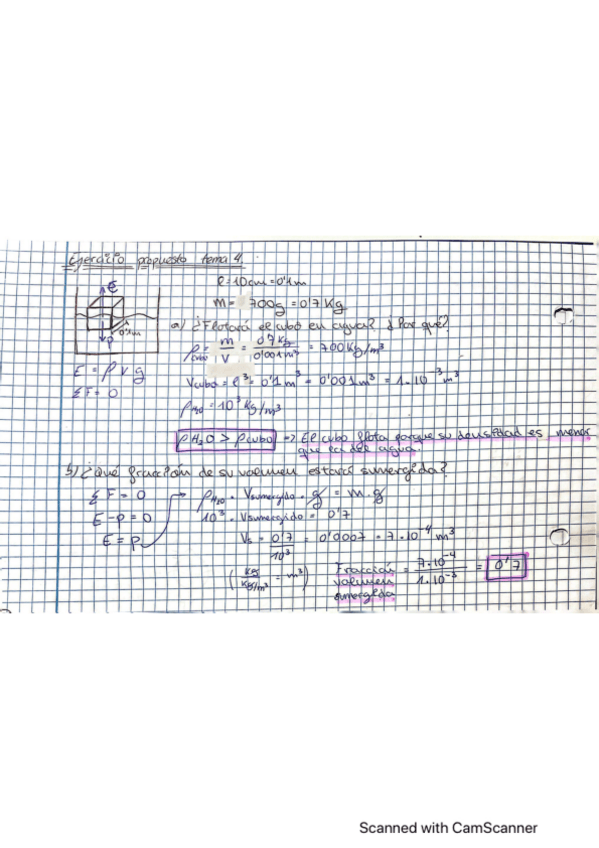 Ejercicio propuesto tema 4.
l = 10cm = 0'1m
m = 700g = 0'7 Kg
E
0'1m
P
a) ¿Flotará el cubo en agua? ¿Por qué?
ρcubo = m/V = 0'7 Kg/0'001 m³ = 700 Kg/m³
E = ρ v g
Vcubo = l³ = 0'1 m³ = 0'001 m³ = 1·10⁻³ m³
ΣF = 0
ρH₂O = 10³ Kg/m³
ρH₂O > ρcubo => El cubo flota porque su densidad es menor
que la del agua.
b) ¿Qué fracción de su volumen estará sumergida?
ΣF = 0
ρH₂O · Vsumergido · g = m·g
E - P = 0
10³ · Vsumergido = 0'7
E = P
Vs = 0'7/10³ = 0'0007 = 7·10⁻⁴ m³
(Kg/Kg/m³ = m³)
Fracción volumen sumergida = 7·10⁻⁴/1·10⁻³ = 0'7
Scanned with CamScanner